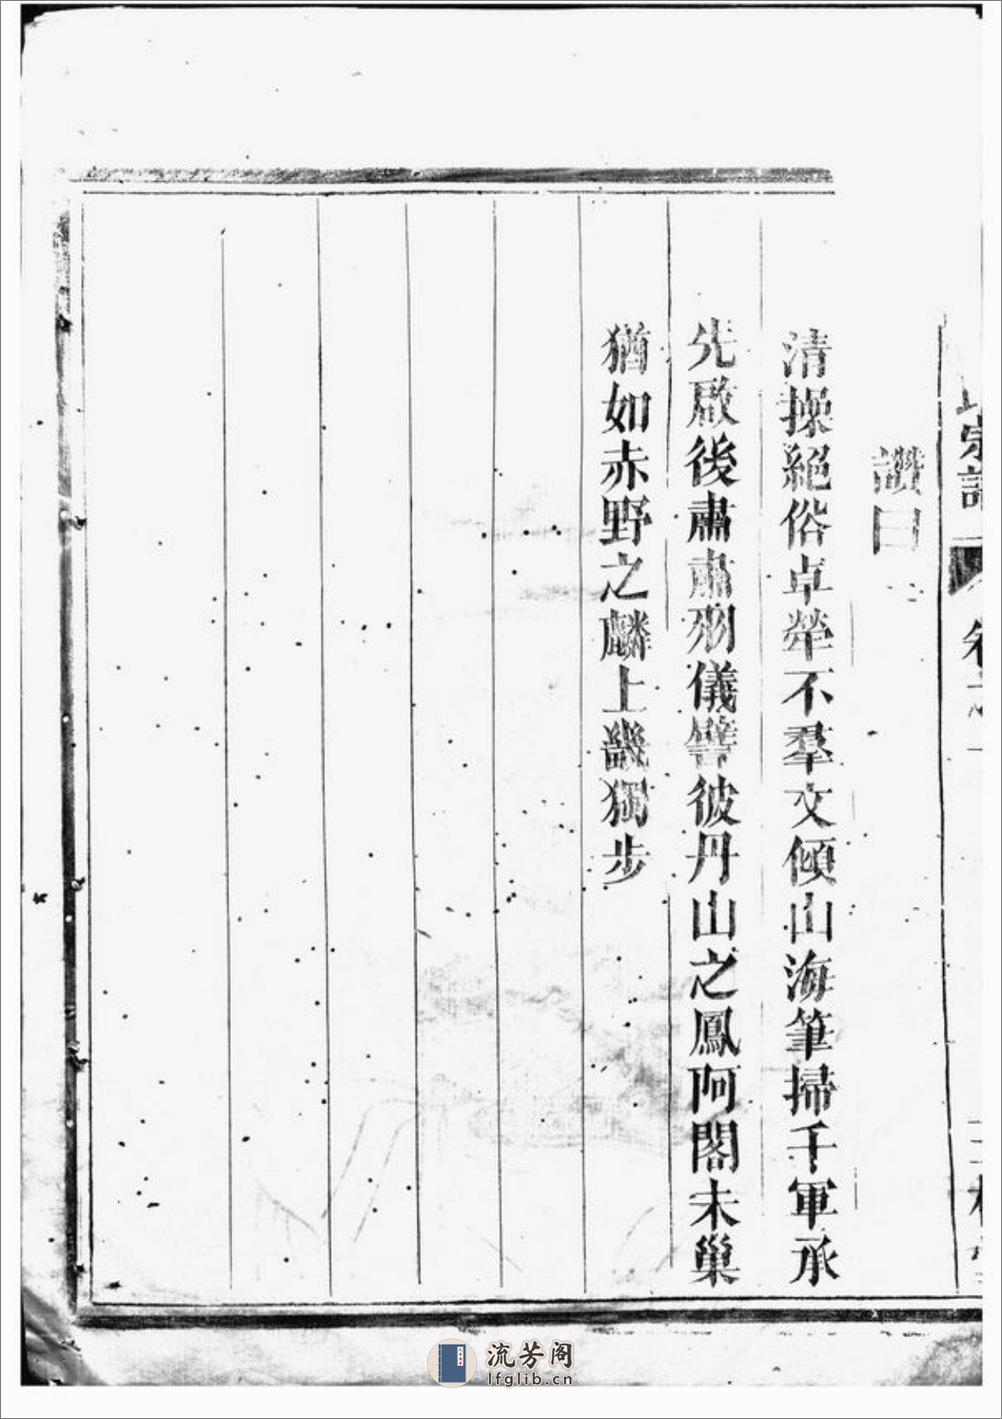 宗譜 卷之一
讚曰
清操絕俗卓犖不羣文傾山海筆掃千軍承
先啟後肅肅刑儀譬彼丹山之鳳阿閣未巢
猶如赤野之麟上畿獨步
流芳阁
lfglib.cn